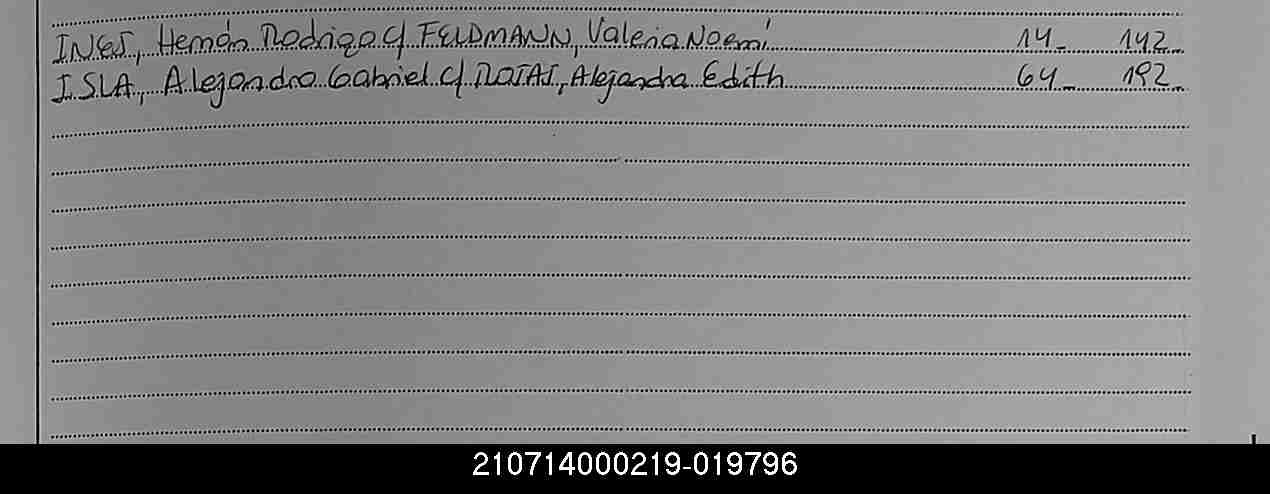 INES, Hernán Rodrigo c/ FELDMANN, Valeria Noemí 14- 142-
ISLA, Alejandro Gabriel c/ ROJAS, Alejandra Edith 64- 192-
210714000219-019796